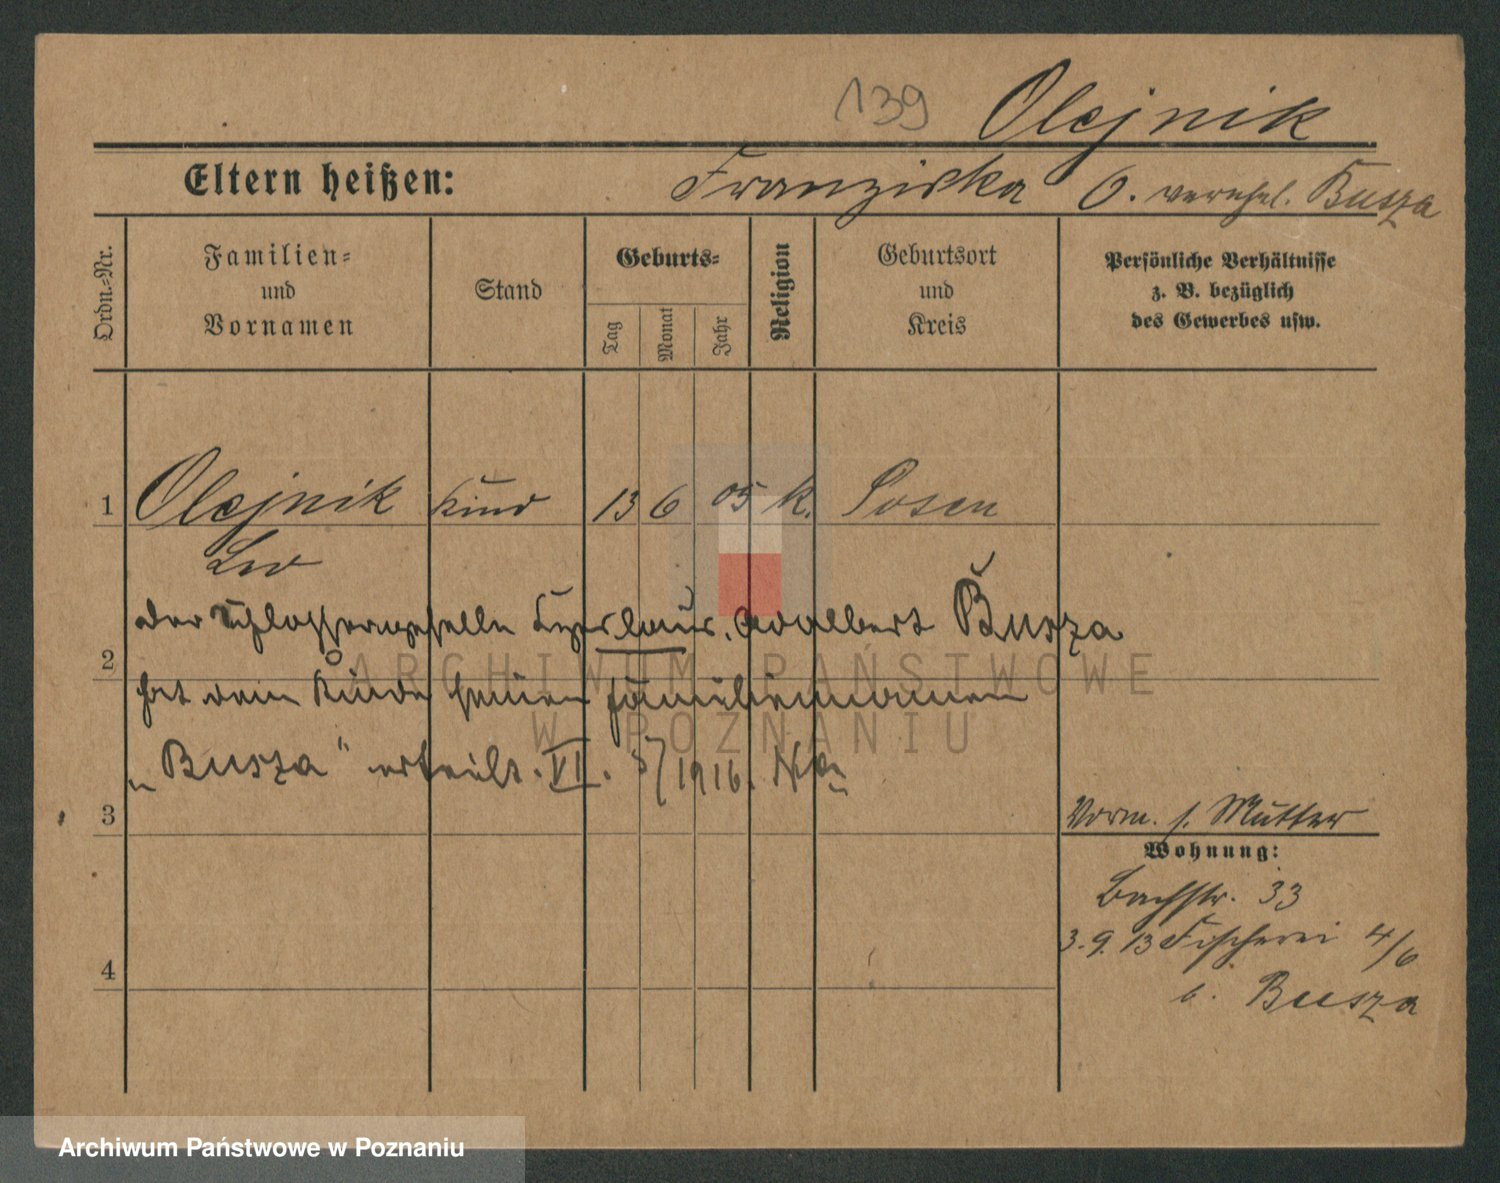 139 Olejnik
Eltern heißen: Franziska O. verehel. Busza
Ordn.-Nr.
Familien-
und
Vornamen
Stand
Geburts-
Tag
Monat
Jahr
Religion
Geburtsort
und
Kreis
Persönliche Verhältnisse
z. B. bezüglich
des Gewerbes usw.
1 Olejnik Kind 13 6 05 k. Posen
Leo
der Schlossergeselle Adalbert Busza
2
hat dem Kinde seinen Familiennamen
„Busza“ erteilt. VI. 5/1916.
3
Vorm. s. Mutter
Wohnung:
Bachstr. 33
3.9.13 Fischerei 4/6
b. Busza
4
ARCHIWUM PAŃSTWOWE
W POZNANIU
Archiwum Państwowe w Poznaniu